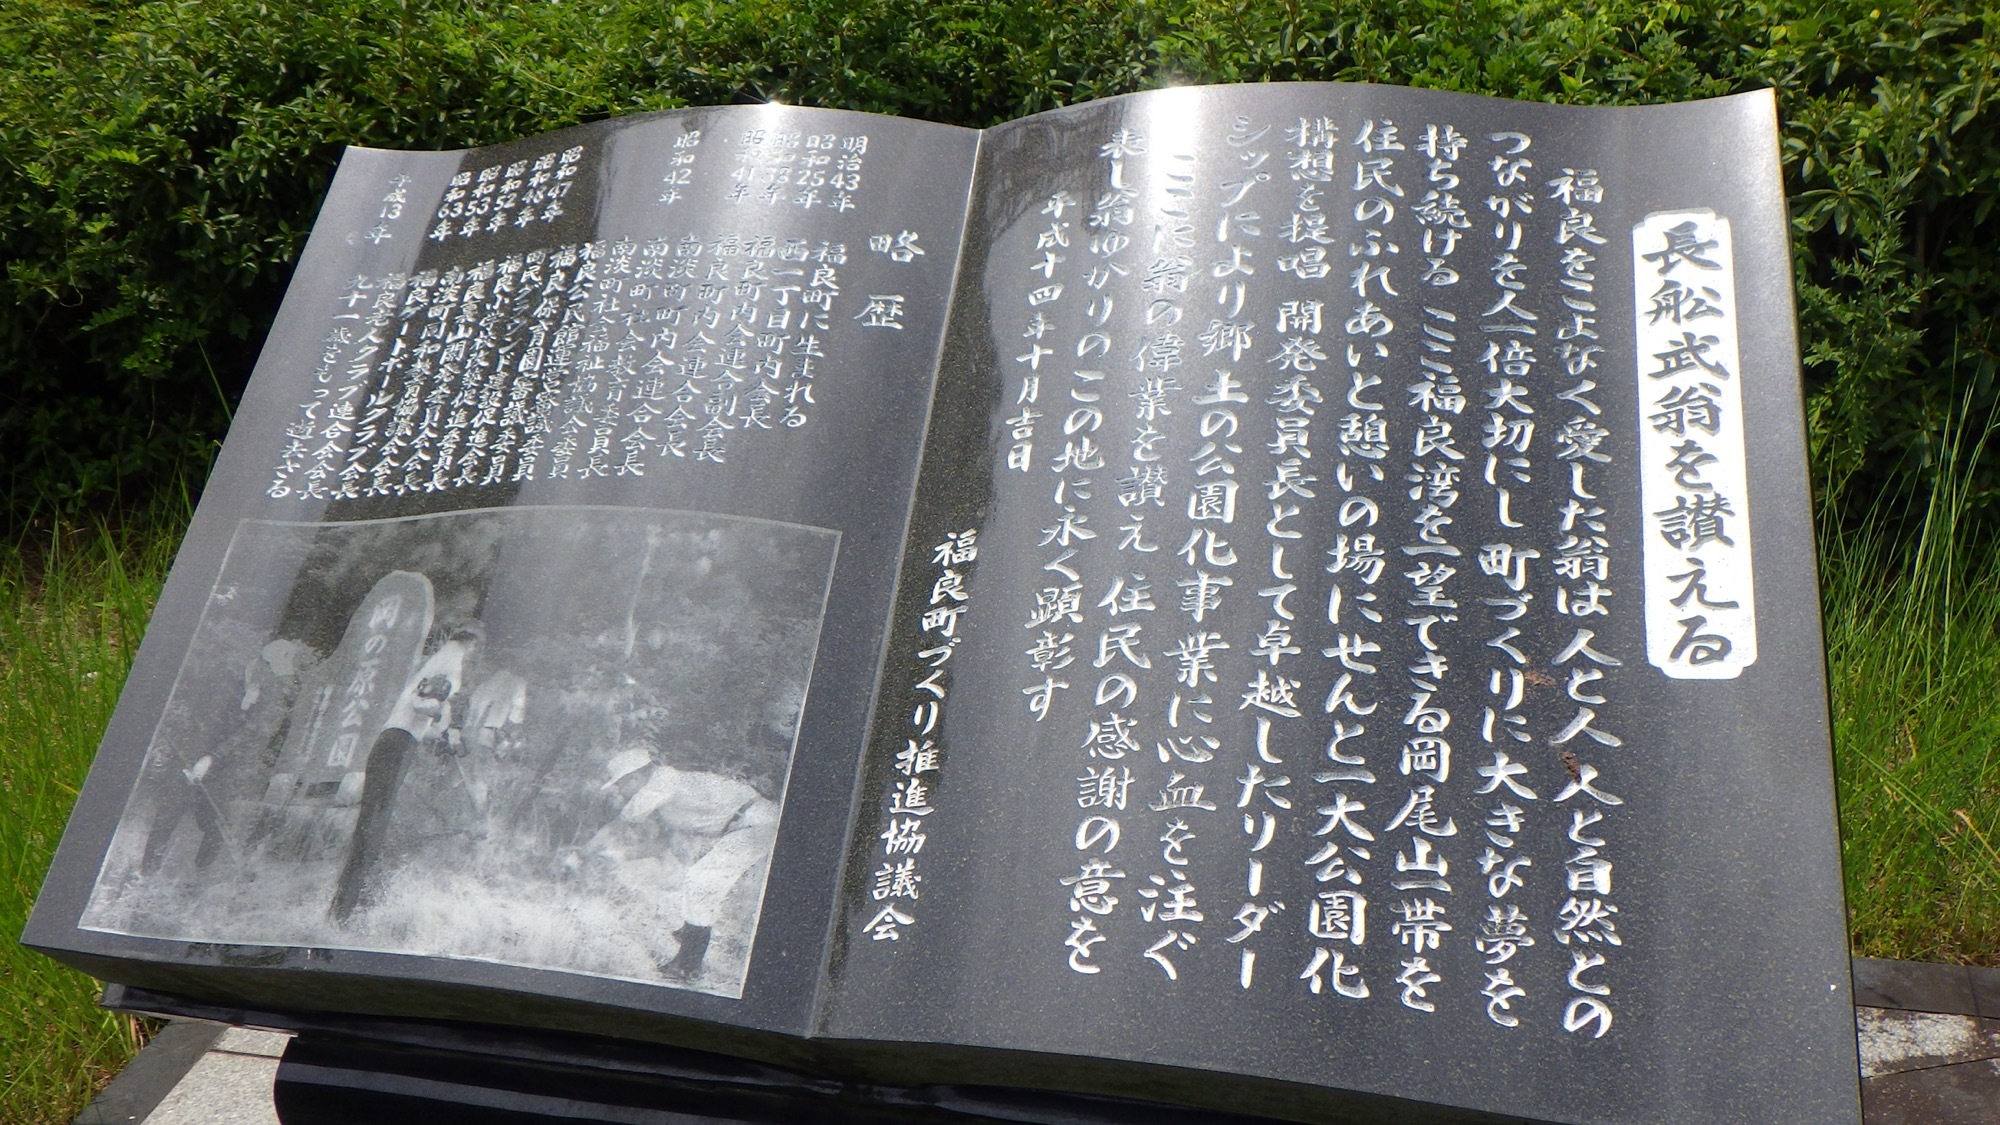 長船武翁を讃える
福良をこよなく愛した翁は 人と人 人と自然との
つながりを人一倍大切にし 町づくりに大きな夢を
持ち続ける ここ福良湾を一望できる岡尾山一帯を
住民のふれあいと憩いの場にせんと一大公園化
構想を提唱 開発委員長として卓越したリーダー
シップにより郷土の公園化事業に心血を注ぐ
ここに翁の偉業を讃え 住民の感謝の意を
表し翁ゆかりのこの地に永く顕彰す
平成十四年十月吉日
福良町づくり推進協議会
略歴
明治43年 福良町に生まれる
昭和25年 西一丁目町内会長
昭和38年 福良町内会連合副会長
昭和41年 福良町内会連合会長
南淡町町内会連合会長
昭和42年 南淡町社会教育委員長
南淡町社会福祉協議会長
福良公民館運営審議会委員
昭和47年 福良保育園運営審議委員
昭和48年
昭和52年 福良小学校改築促進委員
昭和53年
昭和63年 福良ゲートボールクラブ会長
福良老人クラブ連合会会長
平成13年 九十一歳をもって逝去さる
岡の原公園